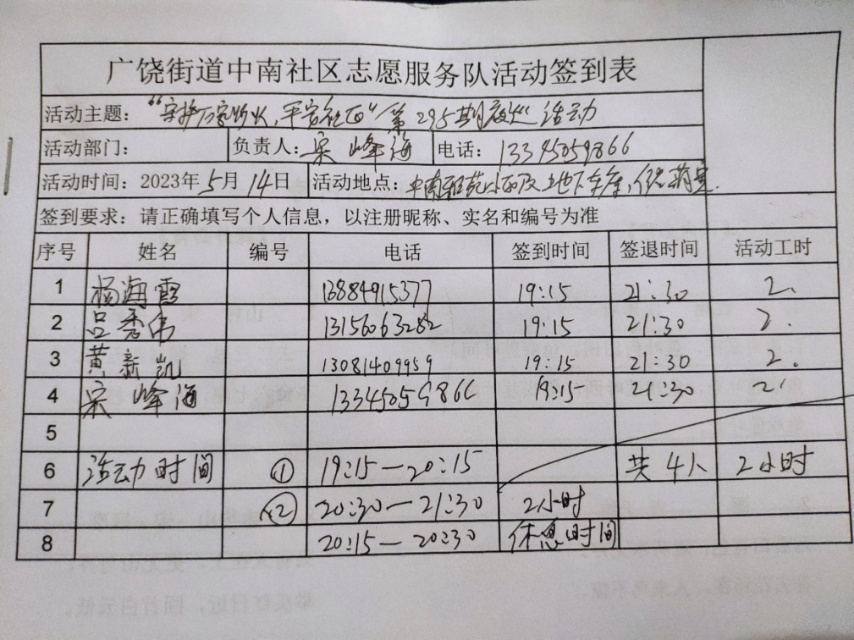 广饶街道中南社区志愿服务队活动签到表
活动主题："守护万家灯火,平安社区"第295期夜巡活动
活动部门： 负责人：宋峰海 电话：13345059866
活动时间：2023年5月14日 活动地点：中南雅苑小区及地下车库
签到要求：请正确填写个人信息，以注册昵称、实名和编号为准
序号 姓名 编号 电话 签到时间 签退时间 活动工时
1 杨海霞 13884915377 19:15 21:30 2.
2 吕秀伟 13156063282 19:15 21:30 2.
3 黄新凯 13081409959 19:15 21:30 2.
4 宋峰海 13345059866 19:15 21:30 2.
5
6 活动时间 ① 19:15—20:15 共4人 2小时
7 ② 20:30—21:30 2小时
8 20:15—20:30 休息时间